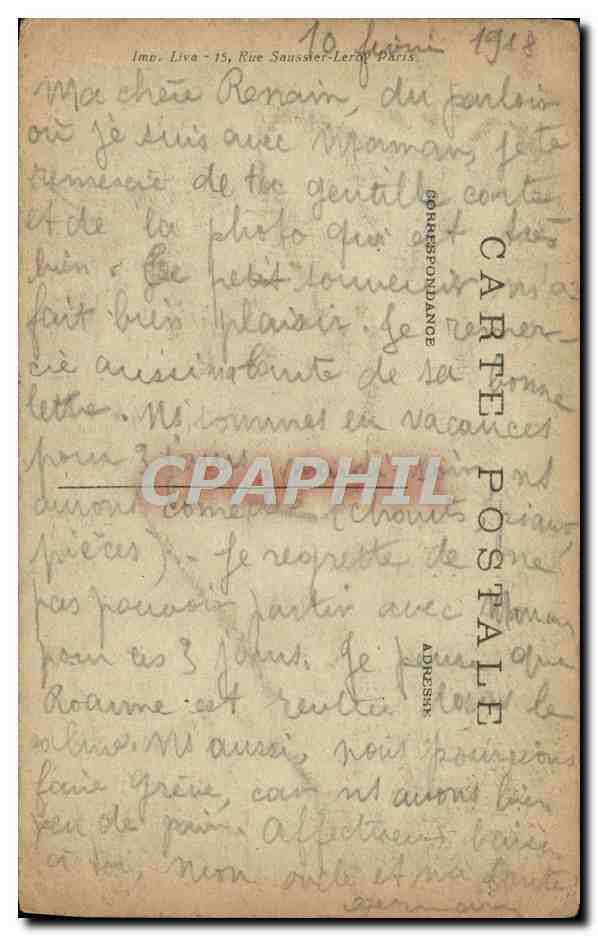 10 février 1918
Imp. Liva - 15, Rue Saussier-Leroy Paris
Ma chère du parloir
où je suis avec Maman, je te
remercie de ta gentille carte
et de la photo qui est très
bien. Ce petit souvenir m'a
fait bien plaisir. Je remer-
cie aussi ma tante de sa bonne
lettre. Ns sommes en vacances
pour 3 jours ns
aurons comédie (chants,
pièces) - Je regrette de ne
pas pouvoir partir avec Maman
pour ces 3 jours. Je pense que
Roanne est le
calme. Ns aussi, nous pourrions
faire grève, car ns avons bien
peu de pain. Affectueux baisers
à toi, mon oncle et ma tante
Germaine
CARTE POSTALE
CORRESPONDANCE
ADRESSE
CPAPHIL